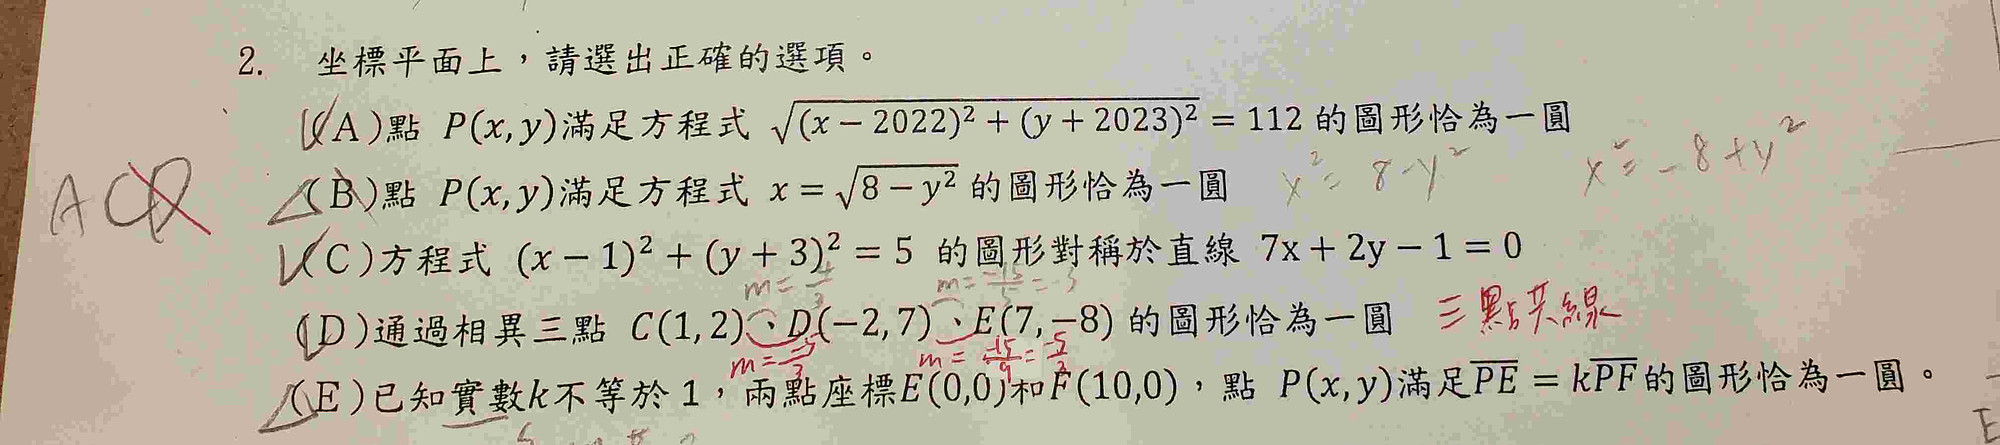 2. 坐標平面上，請選出正確的選項。
(A)點 P(x,y)滿足方程式 √((x−2022)²+(y+2023)²) = 112 的圖形恰為一圓
(B)點 P(x,y)滿足方程式 x = √(8−y²) 的圖形恰為一圓 x² = 8−y² x² = −8+y²
ACD
(C)方程式 (x−1)²+(y+3)² = 5 的圖形對稱於直線 7x+2y−1=0
(D)通過相異三點 C(1,2)、D(−2,7)、E(7,−8) 的圖形恰為一圓 三點共線
m = −5/3 m = −15/9 = −5/3
(E)已知實數k不等於 1，兩點座標E(0,0)和F(10,0)，點 P(x,y)滿足PE = kPF的圖形恰為一圓。